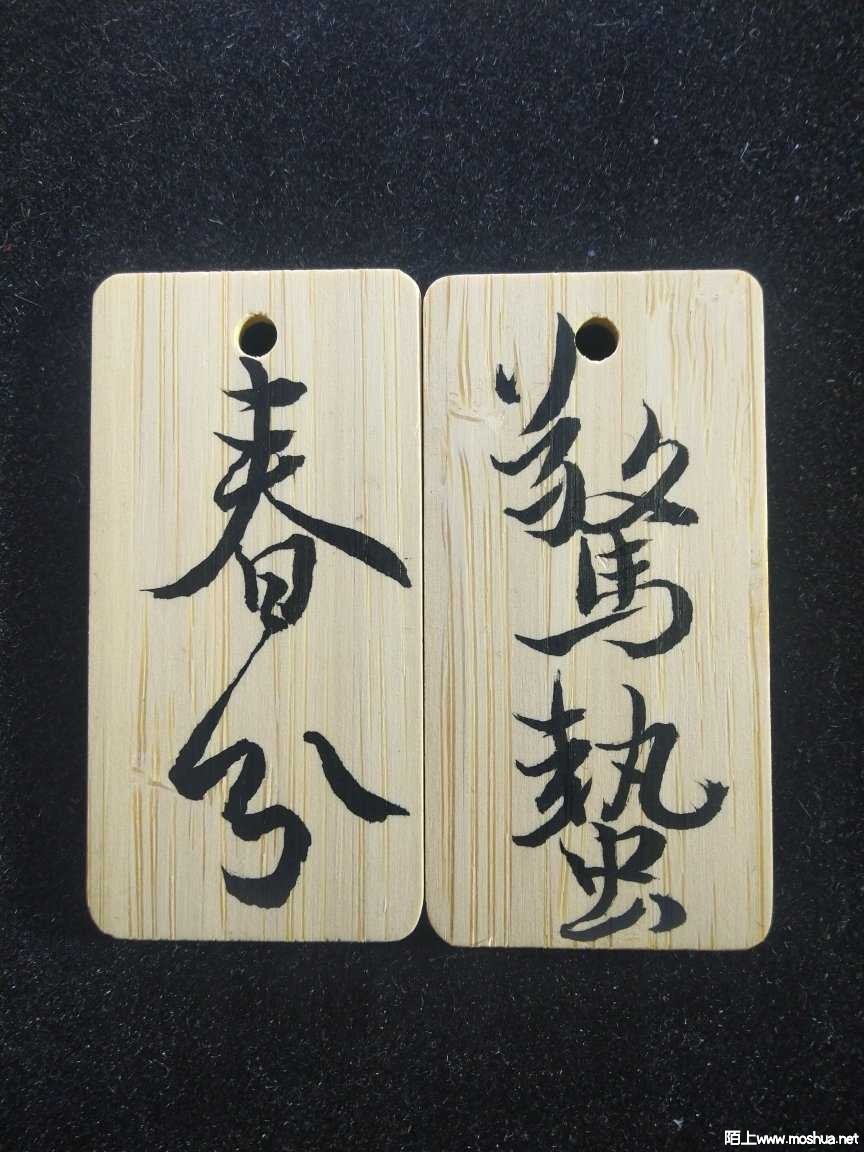 驚蟄
春分
陌上www.moshua.net